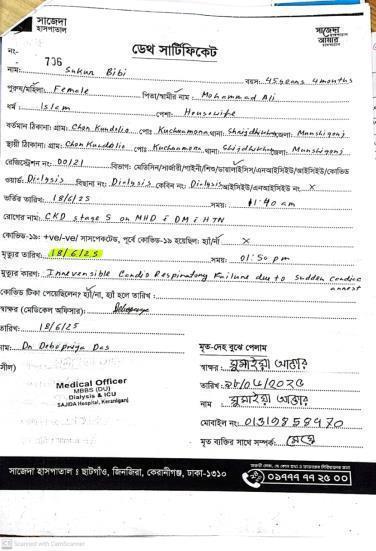 সাজেদা
হাসপাতাল
সাজেদা
আমার
হাসপাতাল
ডেথ সার্টিফিকেট
নং- 706
নাম: Sukur Bibi বয়স: 45 years 4 months
পুরুষ/মহিলা: Female পিতা/স্বামীর নাম: Mohammad Ali
ধর্ম: Islam পেশা: Housewife
বর্তমান ঠিকানা: গ্রাম: পোঃ থানা: জেলা: Munshigonj
স্থায়ী ঠিকানা: গ্রাম: পোঃ থানা: জেলা: Munshigonj
রেজিস্ট্রেশন নং: 00121 বিভাগ: মেডিসিন/সার্জারী/গাইনী/শিশু/ডায়ালাইসিস/এনআইসিইউ/আইসিইউ/কোভিড
ওয়ার্ড: Dialysis বিছানা নং: Dialysis কেবিন নং: Dialysis আইসিইউ/এনআইসিইউ নং: X
ভর্তির তারিখ: 18/6/25 সময়: 11:40 am
রোগের নাম: CKD stage 5 on MHD & DM & HTN
কোভিড-১৯: +ve/-ve/ সাসপেকটেড, পূর্বে কোভিড-১৯ হয়েছিল: হ্যাঁ/না X
মৃত্যুর তারিখ: 18/6/25 সময়: 01:50 pm
মৃত্যুর কারণ: Irreversible Cardio Respiratory Failure due to sudden cardiac
arrest
কোভিড টিকা পেয়েছিলেন? হ্যাঁ/না, হ্যা হলে তারিখ:
স্বাক্ষর (মেডিকেল অফিসার): Debopriya
তারিখ: 18/6/25
নাম: Dr. Debopriya Das
সীল)
Medical Officer
MBBS (DU)
Dialysis & ICU
SAJIDA Hospital, Keraniganj
মৃত-দেহ বুঝে পেলাম
স্বাক্ষর: সুমাইয়া আক্তার
তারিখ: ১৮/০৬/২০২৫
নাম: সুমাইয়া আক্তার
মোবাইল নং:
মৃত ব্যক্তির সাথে সম্পর্ক: মেয়ে
সাজেদা হাসপাতাল : ছাটগাঁও, জিনজিরা, কেরানীগঞ্জ, ঢাকা-১৩১০
০১৭৭৭ ৭৭ ২৫ ০০
CS Scanned with CamScanner